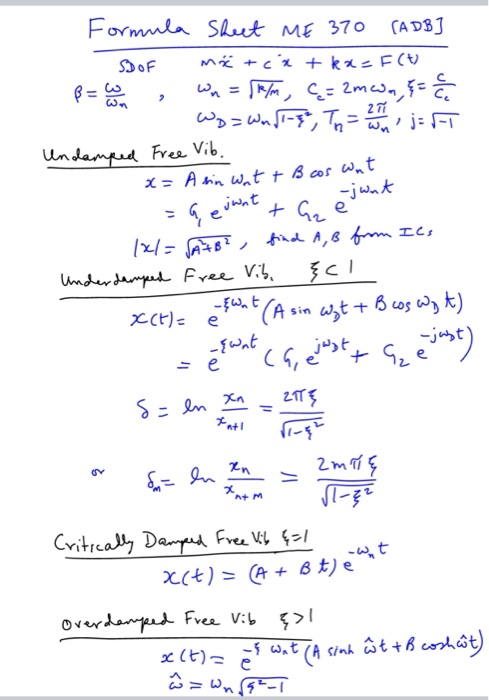 Formula Sheet ME 370 [ADB]
SDOF mẍ + cẋ + kx = F(t)
β = ω/ωn , ωn = √k/m, Cc = 2mωn, ξ = c/Cc
ωD = ωn√1-ξ², Tn = 2π/ωn, j = √-1
Undamped Free Vib.
x = A sin ωnt + B cos ωnt
= G1 e^jωnt + G2 e^-jωnt
|x| = √A²+B² , find A, B from ICs
Underdamped Free Vib. ξ < 1
x(t) = e^-ξωnt (A sin ωDt + B cos ωDt)
= e^-ξωnt (G1 e^jωDt + G2 e^-jωDt)
δ = ln xn/xn+1 = 2πξ/√1-ξ²
or δm = ln xn/xn+m = 2mπξ/√1-ξ²
Critically Damped Free Vib ξ=1
x(t) = (A + Bt) e^-ωnt
Overdamped Free Vib ξ>1
x(t) = e^-ξωnt (A sinh ω̂t + B cosh ω̂t)
ω̂ = ωn√ξ²-1